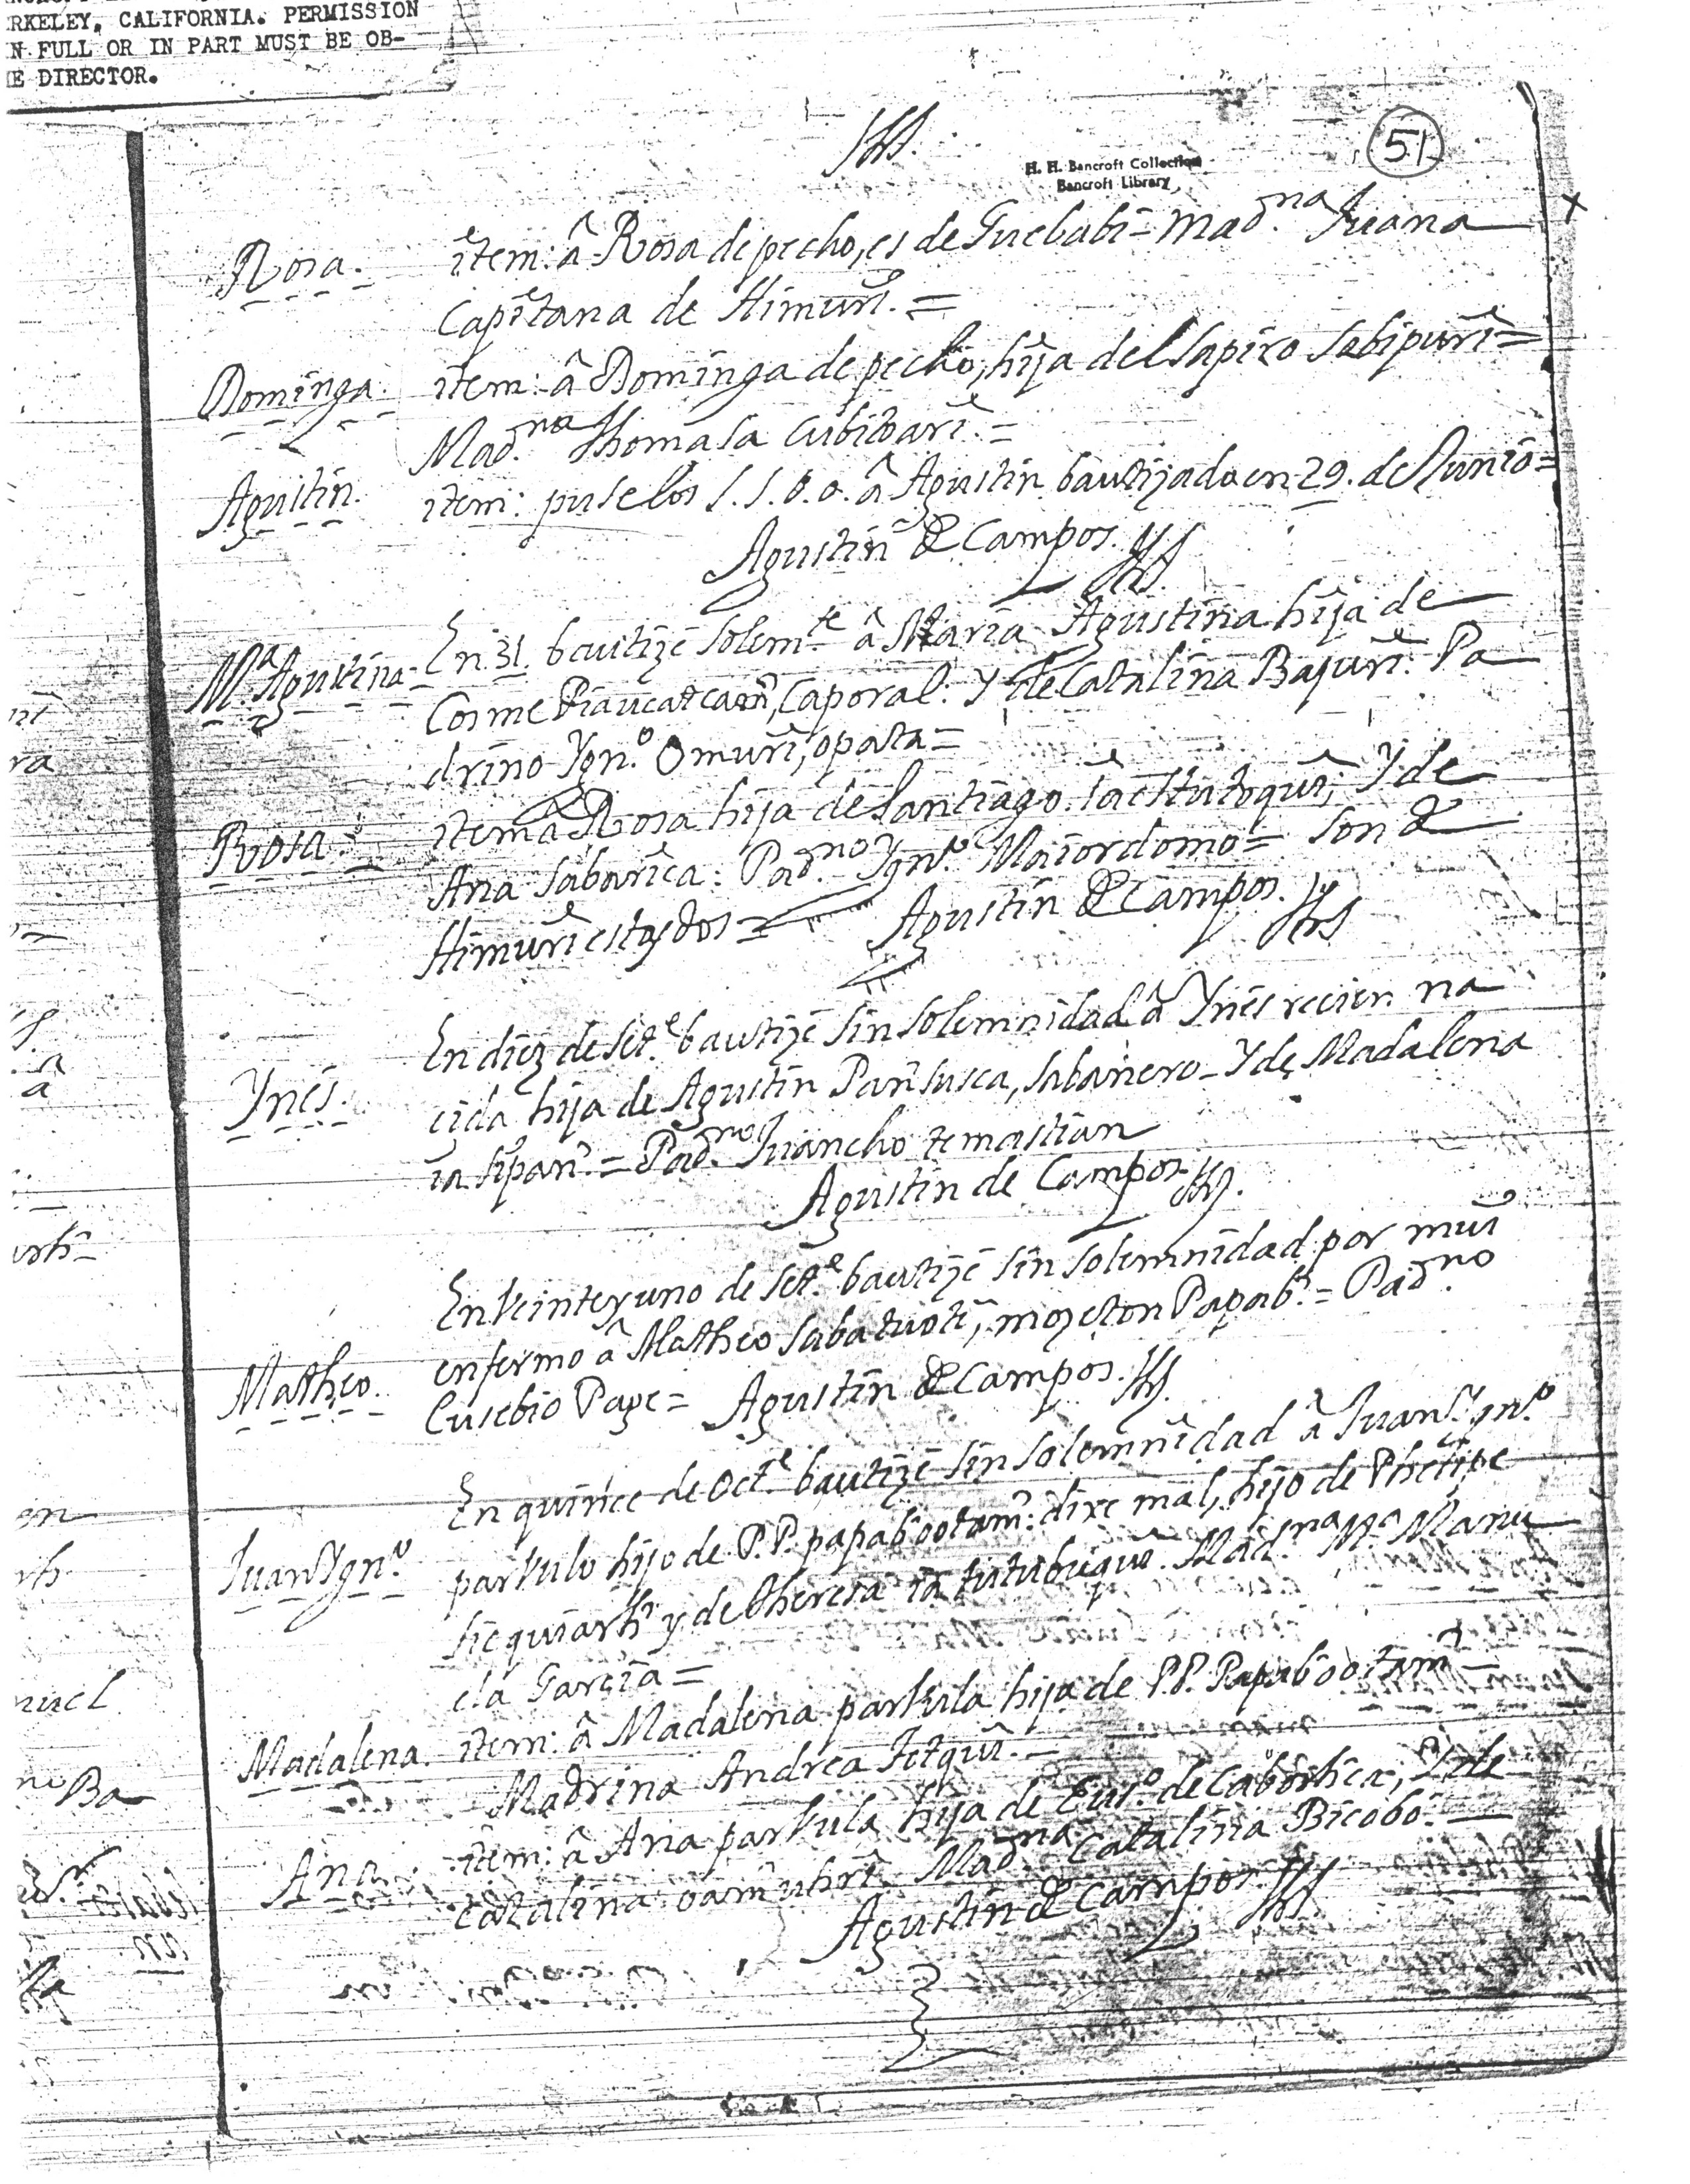 RKELEY, CALIFORNIA. PERMISSION
N FULL OR IN PART MUST BE OB-
E DIRECTOR.
Jhs.
51
H. H. Bancroft Collection
Bancroft Library
Rosa. item: â Rosa de pecho, es de Guebabi = Mad.na Juana
Capitana de Himuri. =
Dominga. item: â Dominga de pecho, hija del Sapiro Sobipuri =
Mad.na Thomasa Cubitoari. =
Agustin. item: puse los S.S. O.o. â Agustin bautizado en 29. de Junio =
Agustin de Campos. Jhs
M.a Agustina. En 31. bautizè solem.te â Maria Agustina hija de
Cosme Piaucatcam, Caporal. Y de Catalina Bajuri. Pa
drino Ygn.o Omuri, opata =
Rosa. item â Rosa hija de Santiago. Y de
Ana Sabarica: Pad.no Ygn.o Maiordomo = Son de
Himuri estas dos =
Agustin de Campos. Jhs
En diez de Set.e bautizè sin solemnidad â Ynes recien na
Ynes. cida hija de Agustin Pansusca, Sabanero - Y de Madalena
= Pad.no Juancho temastian
Agustin de Campos. Jhs.
En veinte y uno de Set.e bautizè sin solemnidad por mui
Matheo. enfermo â Matheo Sabatuoti, mozeton Papab. = Pad.no
Eusebio Page = Agustin de Campos. Jhs.
En quince de Oct.e bautizè sin solemnidad â Juan Ygn.o
Juan Ygn.o parvulo hijo de P.P. papabootam: dixe mal, hijo de Phelipe
y de Theresa Mad.na M.a Manu
ela Garcia =
Madalena. item: â Madalena parvula hija de P.P. Papabootam
Madrina Andrea
Ana. item: â Ana parvula hija de Eus.o de Cabortica, Y de
Catalina Mad.na Catalina Bicobo.
Agustin de Campos. Jhs.